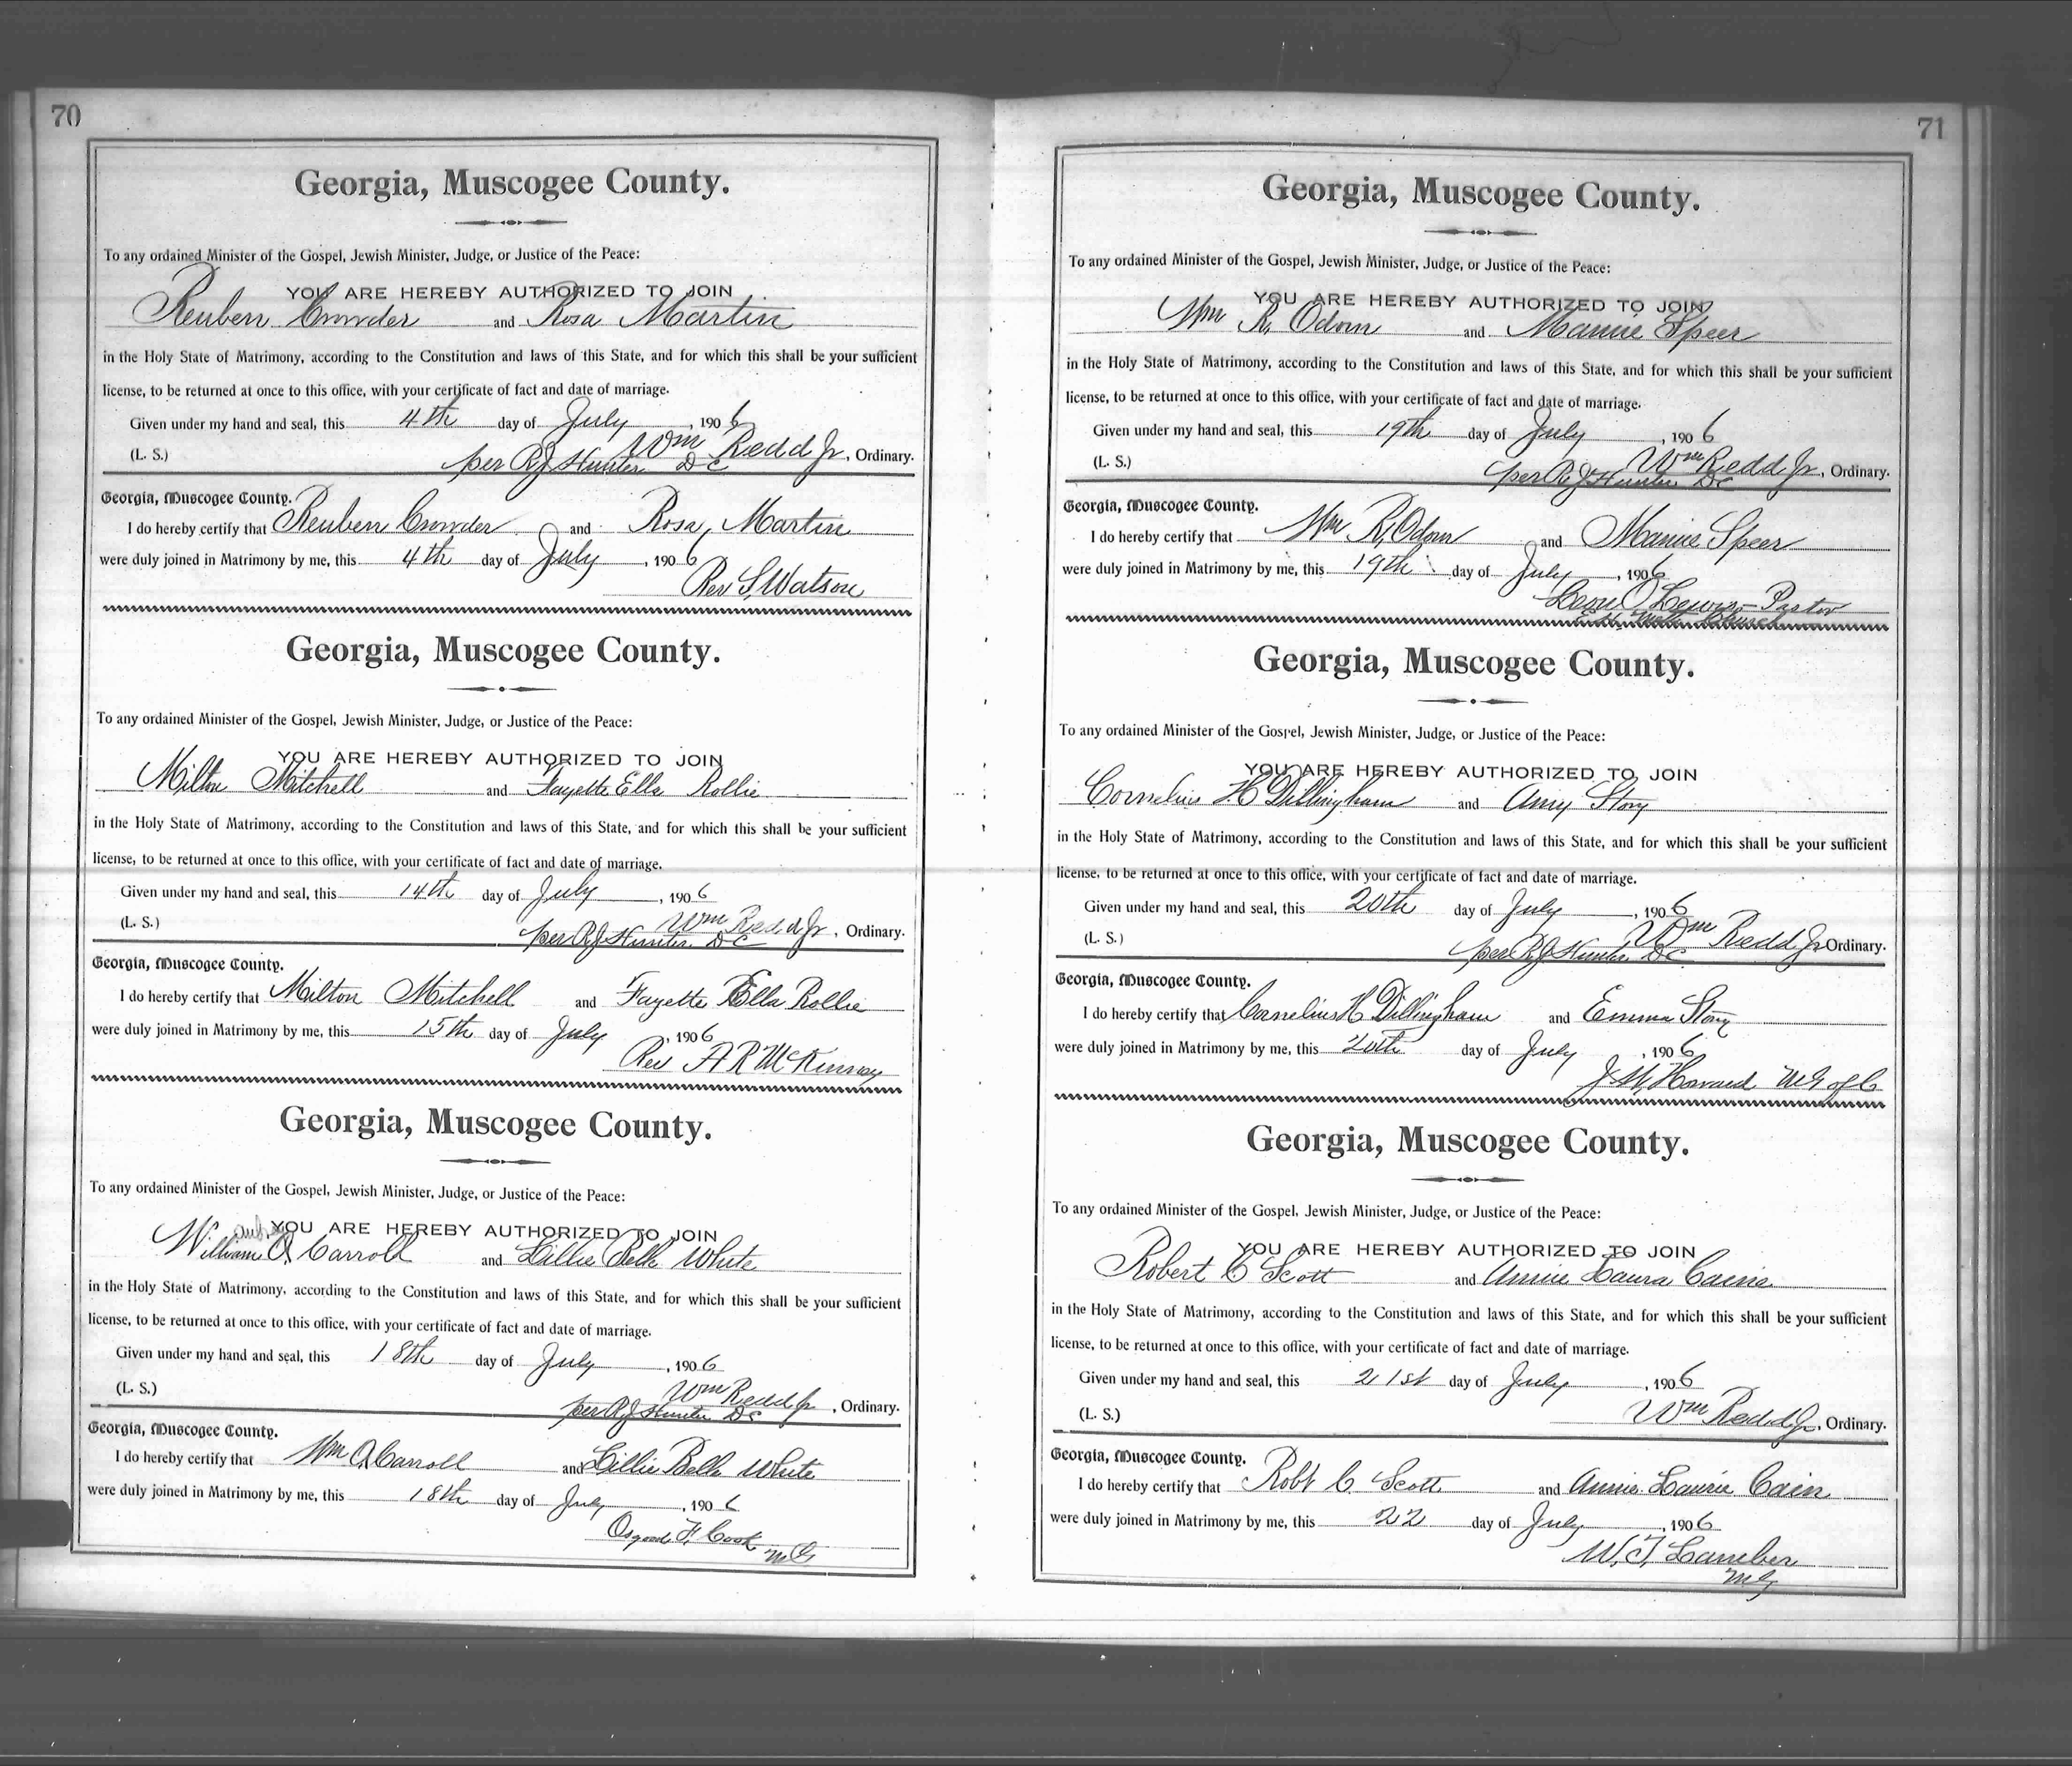 70
Georgia, Muscogee County.
To any ordained Minister of the Gospel, Jewish Minister, Judge, or Justice of the Peace:
YOU ARE HEREBY AUTHORIZED TO JOIN
Reuben Crowder and Rosa Martin
in the Holy State of Matrimony, according to the Constitution and laws of this State, and for which this shall be your sufficient
license, to be returned at once to this office, with your certificate of fact and date of marriage.
Given under my hand and seal, this 4th day of July, 1906
(L. S.) Wm Redd Jr, Ordinary.
per R J Hunter D C
Georgia, Muscogee County.
I do hereby certify that Reuben Crowder and Rosa Martin
were duly joined in Matrimony by me, this 4th day of July, 1906
Rev S. Watson
Georgia, Muscogee County.
To any ordained Minister of the Gospel, Jewish Minister, Judge, or Justice of the Peace:
YOU ARE HEREBY AUTHORIZED TO JOIN
Milton Mitchell and Fayette Ella Rollie
in the Holy State of Matrimony, according to the Constitution and laws of this State, and for which this shall be your sufficient
license, to be returned at once to this office, with your certificate of fact and date of marriage.
Given under my hand and seal, this 14th day of July, 1906
(L. S.) Wm Redd Jr, Ordinary.
per R J Hunter D C
Georgia, Muscogee County.
I do hereby certify that Milton Mitchell and Fayette Ella Rollie
were duly joined in Matrimony by me, this 15th day of July, 1906
Rev A R McKinney
Georgia, Muscogee County.
To any ordained Minister of the Gospel, Jewish Minister, Judge, or Justice of the Peace:
YOU ARE HEREBY AUTHORIZED TO JOIN
William Carroll and Lillie Belle White
in the Holy State of Matrimony, according to the Constitution and laws of this State, and for which this shall be your sufficient
license, to be returned at once to this office, with your certificate of fact and date of marriage.
Given under my hand and seal, this 18th day of July, 1906
(L. S.) Wm Redd Jr, Ordinary.
per R J Hunter D C
Georgia, Muscogee County.
I do hereby certify that Wm Carroll and Lillie Belle White
were duly joined in Matrimony by me, this 18th day of July, 1906
Osgood F. Cook
M G
71
Georgia, Muscogee County.
To any ordained Minister of the Gospel, Jewish Minister, Judge, or Justice of the Peace:
YOU ARE HEREBY AUTHORIZED TO JOIN
Wm R. Odom and Mamie Speer
in the Holy State of Matrimony, according to the Constitution and laws of this State, and for which this shall be your sufficient
license, to be returned at once to this office, with your certificate of fact and date of marriage.
Given under my hand and seal, this 19th day of July, 1906
(L. S.) Wm Redd Jr, Ordinary.
per R J Hunter D C
Georgia, Muscogee County.
I do hereby certify that Wm R. Odom and Mamie Speer
were duly joined in Matrimony by me, this 19th day of July, 1906
Pastor
Church
Georgia, Muscogee County.
To any ordained Minister of the Gospel, Jewish Minister, Judge, or Justice of the Peace:
YOU ARE HEREBY AUTHORIZED TO JOIN
Cornelius H Dillingham and Amy Story
in the Holy State of Matrimony, according to the Constitution and laws of this State, and for which this shall be your sufficient
license, to be returned at once to this office, with your certificate of fact and date of marriage.
Given under my hand and seal, this 20th day of July, 1906
(L. S.) Wm Redd Jr Ordinary.
per R J Hunter D C
Georgia, Muscogee County.
I do hereby certify that Cornelius H Dillingham and Emma Story
were duly joined in Matrimony by me, this 20th day of July, 1906
J. W. Howard
Georgia, Muscogee County.
To any ordained Minister of the Gospel, Jewish Minister, Judge, or Justice of the Peace:
YOU ARE HEREBY AUTHORIZED TO JOIN
Robert C Scott and Annie Laura Caine
in the Holy State of Matrimony, according to the Constitution and laws of this State, and for which this shall be your sufficient
license, to be returned at once to this office, with your certificate of fact and date of marriage.
Given under my hand and seal, this 21st day of July, 1906
(L. S.) Wm Redd Jr, Ordinary.
Georgia, Muscogee County.
I do hereby certify that Robt C Scott and Annie Laurie Cain
were duly joined in Matrimony by me, this 22 day of July, 1906
W. T.
M G